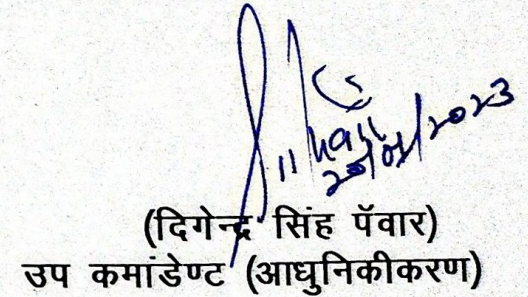 20/01/2023
(दिगेन्द्र सिंह पॅवार)
उप कमांडेण्ट (आधुनिकीकरण)